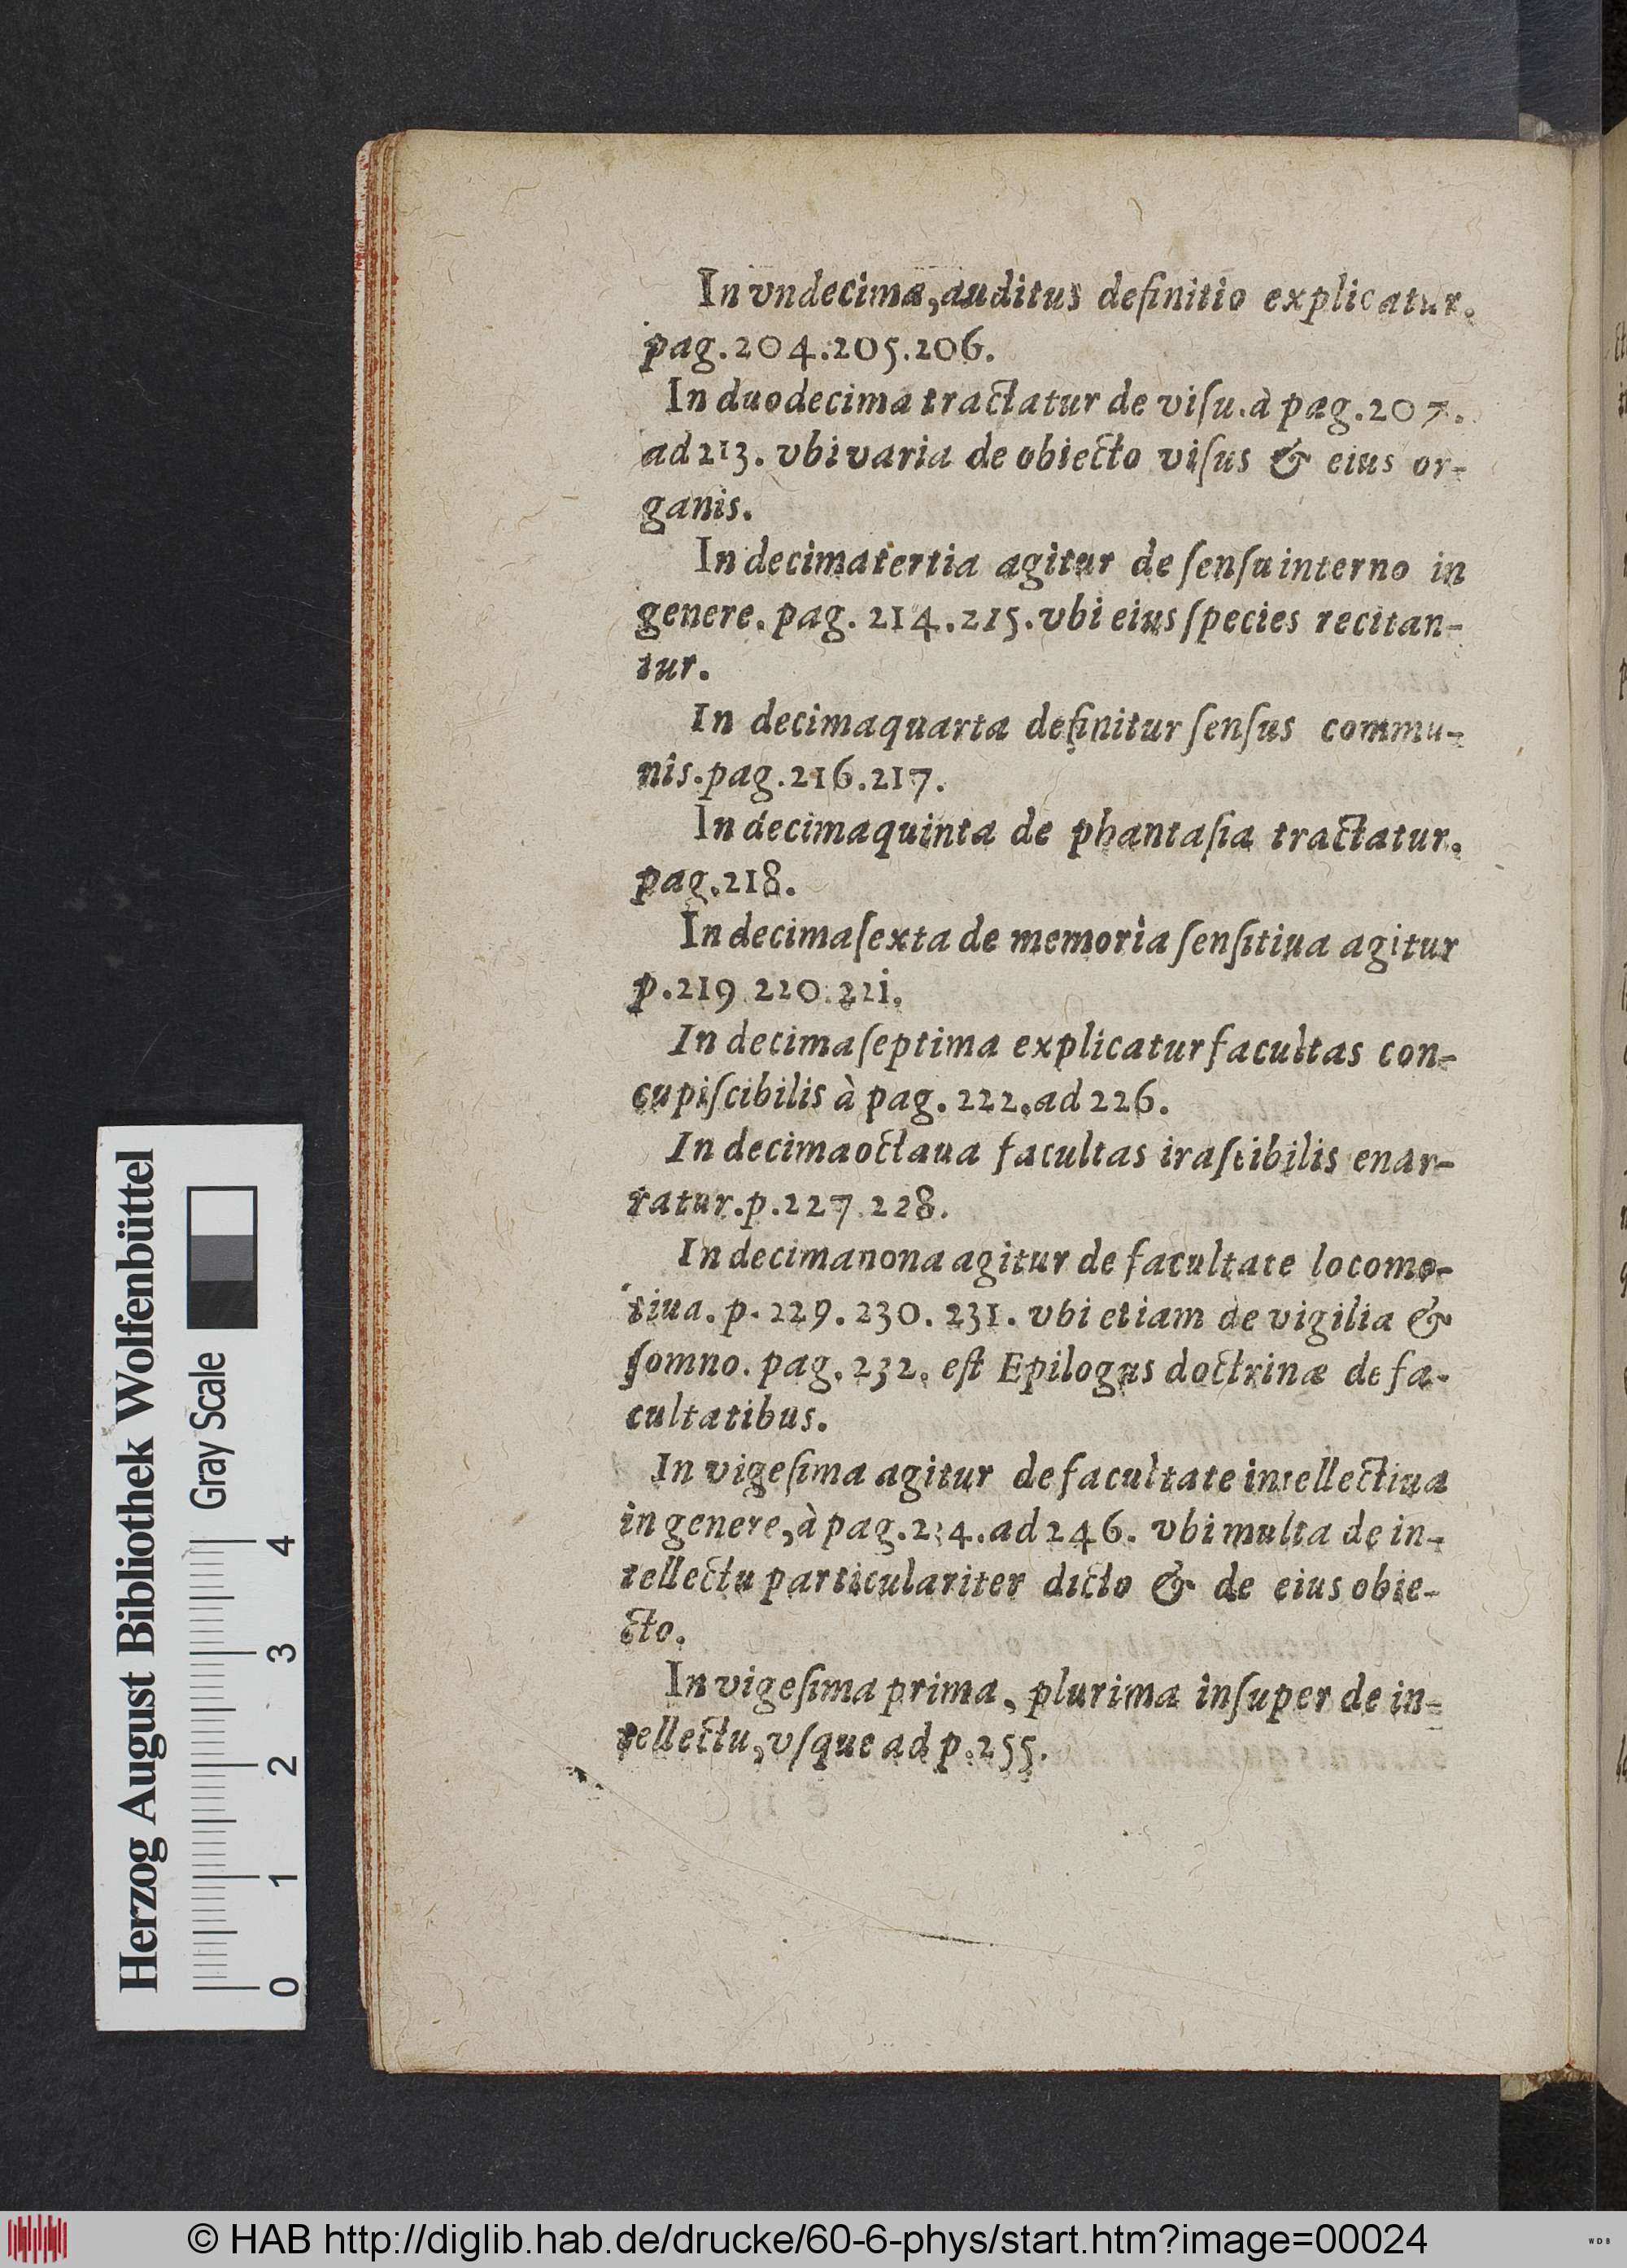 In vndecima, auditus definitio explicatur.
pag. 204. 205. 206.
In duodecima tractatur de viſu. à pag. 207.
ad 213. vbi varia de obiecto viſus & eius or-
ganis.
In decimatertia agitur de ſenſu interno in
genere. pag. 214. 215. vbi eius ſpecies recitan-
tur.
In decimaquarta definitur ſenſus commu-
nis. pag. 216. 217.
In decimaquinta de phantaſia tractatur.
pag. 218.
In decimaſexta de memoria ſenſitiua agitur
p. 219 220. 221.
In decimaſeptima explicatur facultas con-
cupiſcibilis à pag. 222. ad 226.
In decimaoctaua facultas iraſcibilis enar-
ratur. p. 227. 228.
In decimanona agitur de facultate locomo-
tiua. p. 229. 230. 231. vbi etiam de vigilia &
ſomno. pag. 232. eſt Epilogus doctrinæ de fa-
cultatibus.
In vigeſima agitur de facultate intellectiua
in genere, à pag. 234. ad 246. vbi multa de in-
tellectu particulariter dicto & de eius obie-
cto.
In vigeſima prima, plurima inſuper de in-
tellectu, vſque ad p. 255.
Herzog August Bibliothek Wolfenbüttel
Gray Scale
0 1 2 3 4
© HAB http://diglib.hab.de/drucke/60-6-phys/start.htm?image=00024